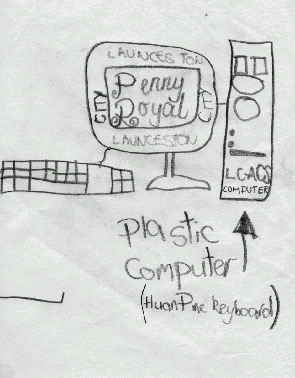 LAUNCESTON
CITY
Penny
Royal
CITY
LAUNCESTON
LGAQS
COMPUTER
Plastic
Computer
(HuonPine keyboard)